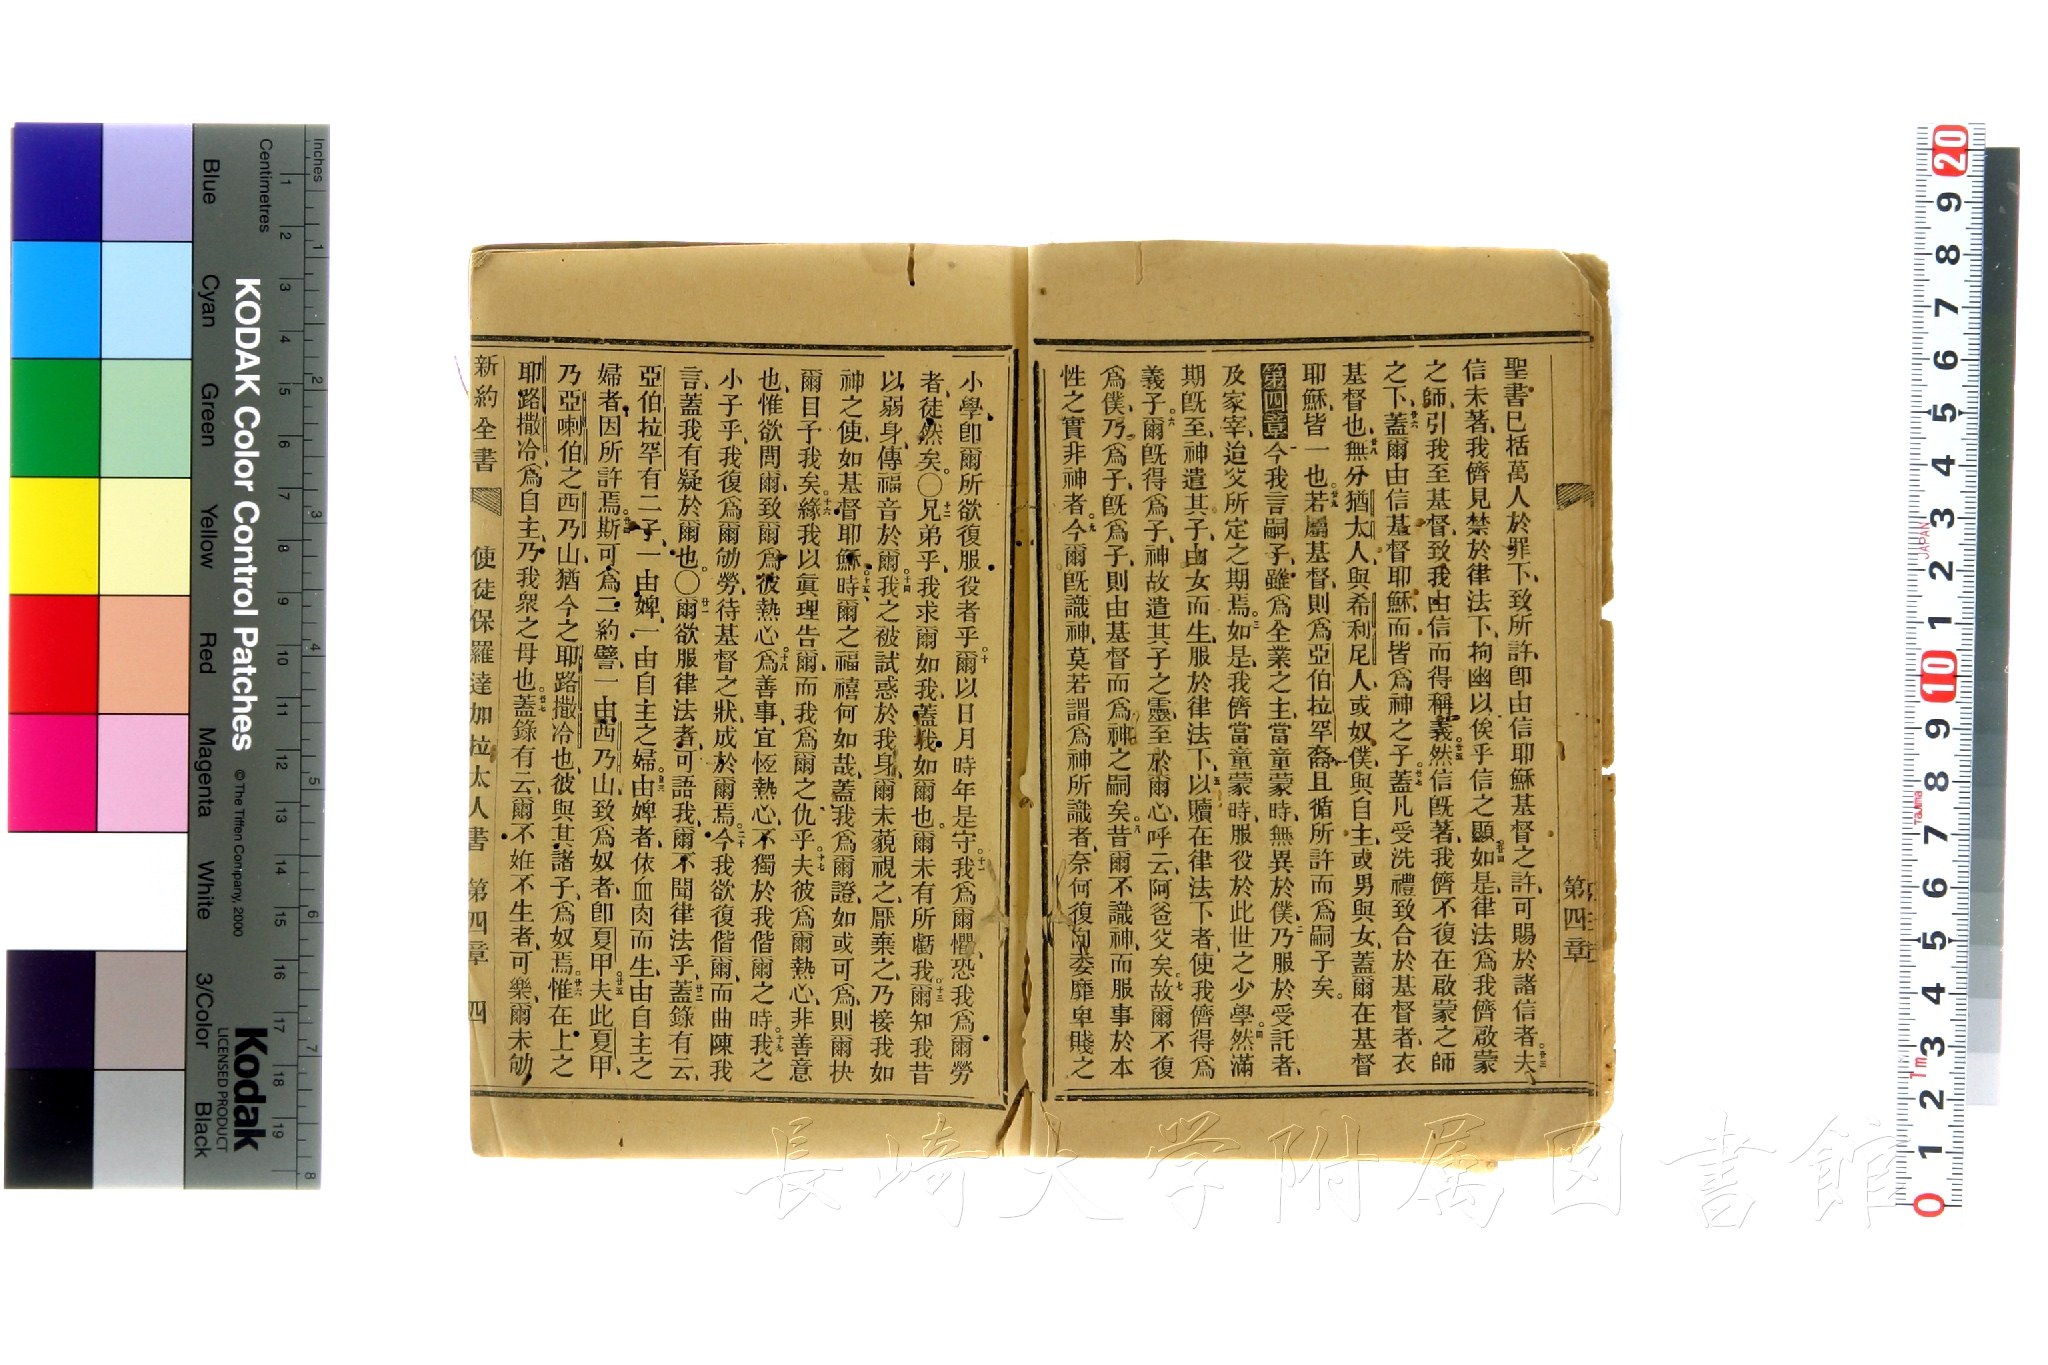 第四章
聖書已括萬人於罪下、致所許、卽由信耶穌基督之許、可賜於諸信者、夫
信未著、我儕見禁於律法下、拘幽以俟乎信之顯、如是、律法爲我儕啟蒙
之師、引我至基督、致我由信而得稱義、然信旣著、我儕不復在啟蒙之師
之下、蓋爾由信基督耶穌、而皆爲神之子、蓋凡受洗禮致合於基督者、衣
基督也、無分猶太人、與希利尼人、或奴僕、與自主、或男與女、蓋爾在基督
耶穌、皆一也、若屬基督、則爲亞伯拉罕裔、且循所許而爲嗣子矣。
第四章 今我言嗣子、雖爲全業之主、當童蒙時、無異於僕、乃服於受託者、
及家宰、迨父所定之期焉、如是、我儕當童蒙時、服役於此世之少學、然滿
期旣至、神遣其子、由女而生、服於律法下、以贖在律法下者、使我儕得爲
義子、爾旣得爲子、神故遣其子之靈、至於爾心、呼云、阿爸父矣、故爾不復
爲僕、乃爲子、旣爲子、則由基督而爲神之嗣矣、昔爾不識神、而服事於本
性之實非神者、今爾旣識神、莫若謂爲神所識者、奈何復向委靡卑賤之
小學、卽爾所欲復服役者乎、爾以日月時年是守、我爲爾懼、恐我爲爾勞
者、徒然矣。〇兄弟乎、我求爾如我、蓋我如爾也、爾未有所虧我、爾知我昔
以弱身、傳福音於爾、我之被試惑於我身、爾未藐視之、厭棄之、乃接我如
神之使、如基督耶穌、時爾之福禧何如哉、蓋我爲爾證、如或可爲、則爾抉
爾目予我矣、緣我以眞理告爾、而我爲爾之仇乎、夫彼爲爾熱心、非善意
也、惟欲間爾、致爾爲彼熱心、爲善事、宜恆熱心、不獨於我偕爾之時、我之
小子乎、我復爲爾劬勞、待基督之狀、成於爾焉、今我欲復偕爾、而曲陳我
言、蓋我有疑於爾也。〇爾欲服律法者、可語我、爾不聞律法乎、蓋錄有云、
亞伯拉罕有二子、一由婢、一由自主之婦、由婢者、依血肉而生、由自主之
婦者、因所許焉、斯可爲二約譬、一由西乃山、致爲奴者、卽夏甲、夫此夏甲、
乃亞喇伯之西乃山、猶今之耶路撒冷也、彼與其諸子、爲奴焉、惟在上之
耶路撒冷、爲自主、乃我衆之母也、蓋錄有云、爾不姙不生者、可樂、爾未劬
新約全書 使徒保羅達加拉太人書 第四章 四
KODAK Color Control Patches
© The Tiffen Company, 2000
Kodak
LICENSED PRODUCT
Inches
Centimetres
Blue
Cyan
Green
Yellow
Red
Magenta
White
3/Color
Black
長崎大学附属図書館
JAPAN
Tajima
1m